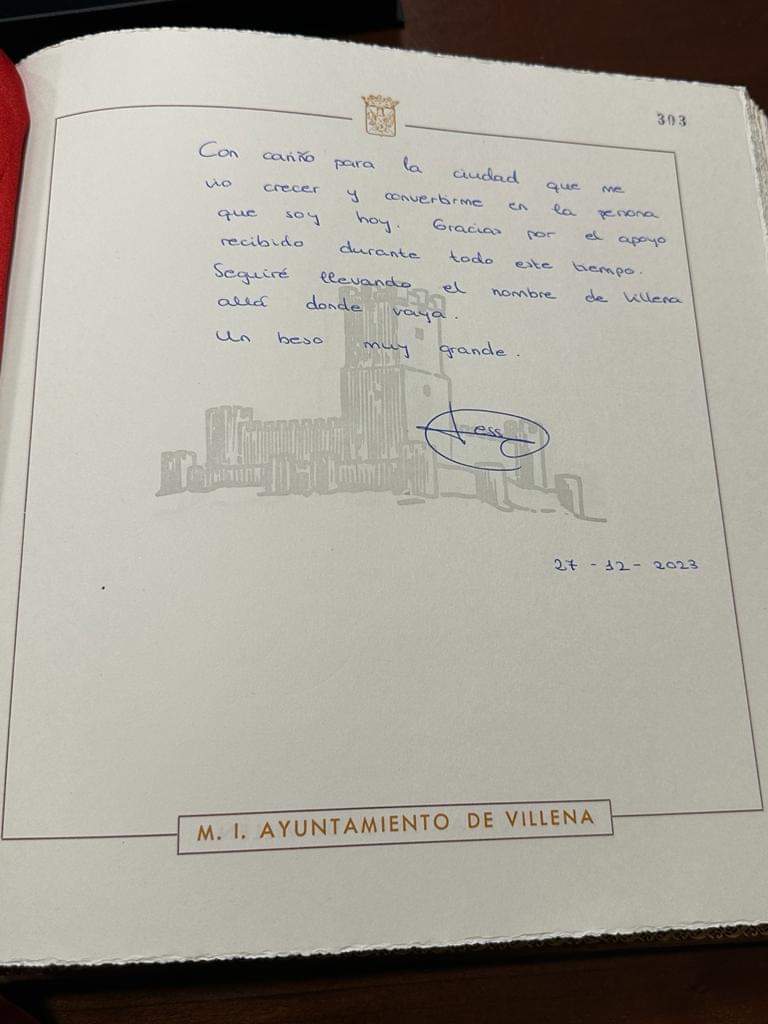 303
Con cariño para la ciudad que me
vio crecer y convertirme en la persona
que soy hoy. Gracias por el apoyo
recibido durante todo este tiempo.
Seguiré llevando el nombre de Villena
allá donde vaya.
Un beso muy grande.
Jessy
27 - 12 - 2023
M. I. AYUNTAMIENTO DE VILLENA